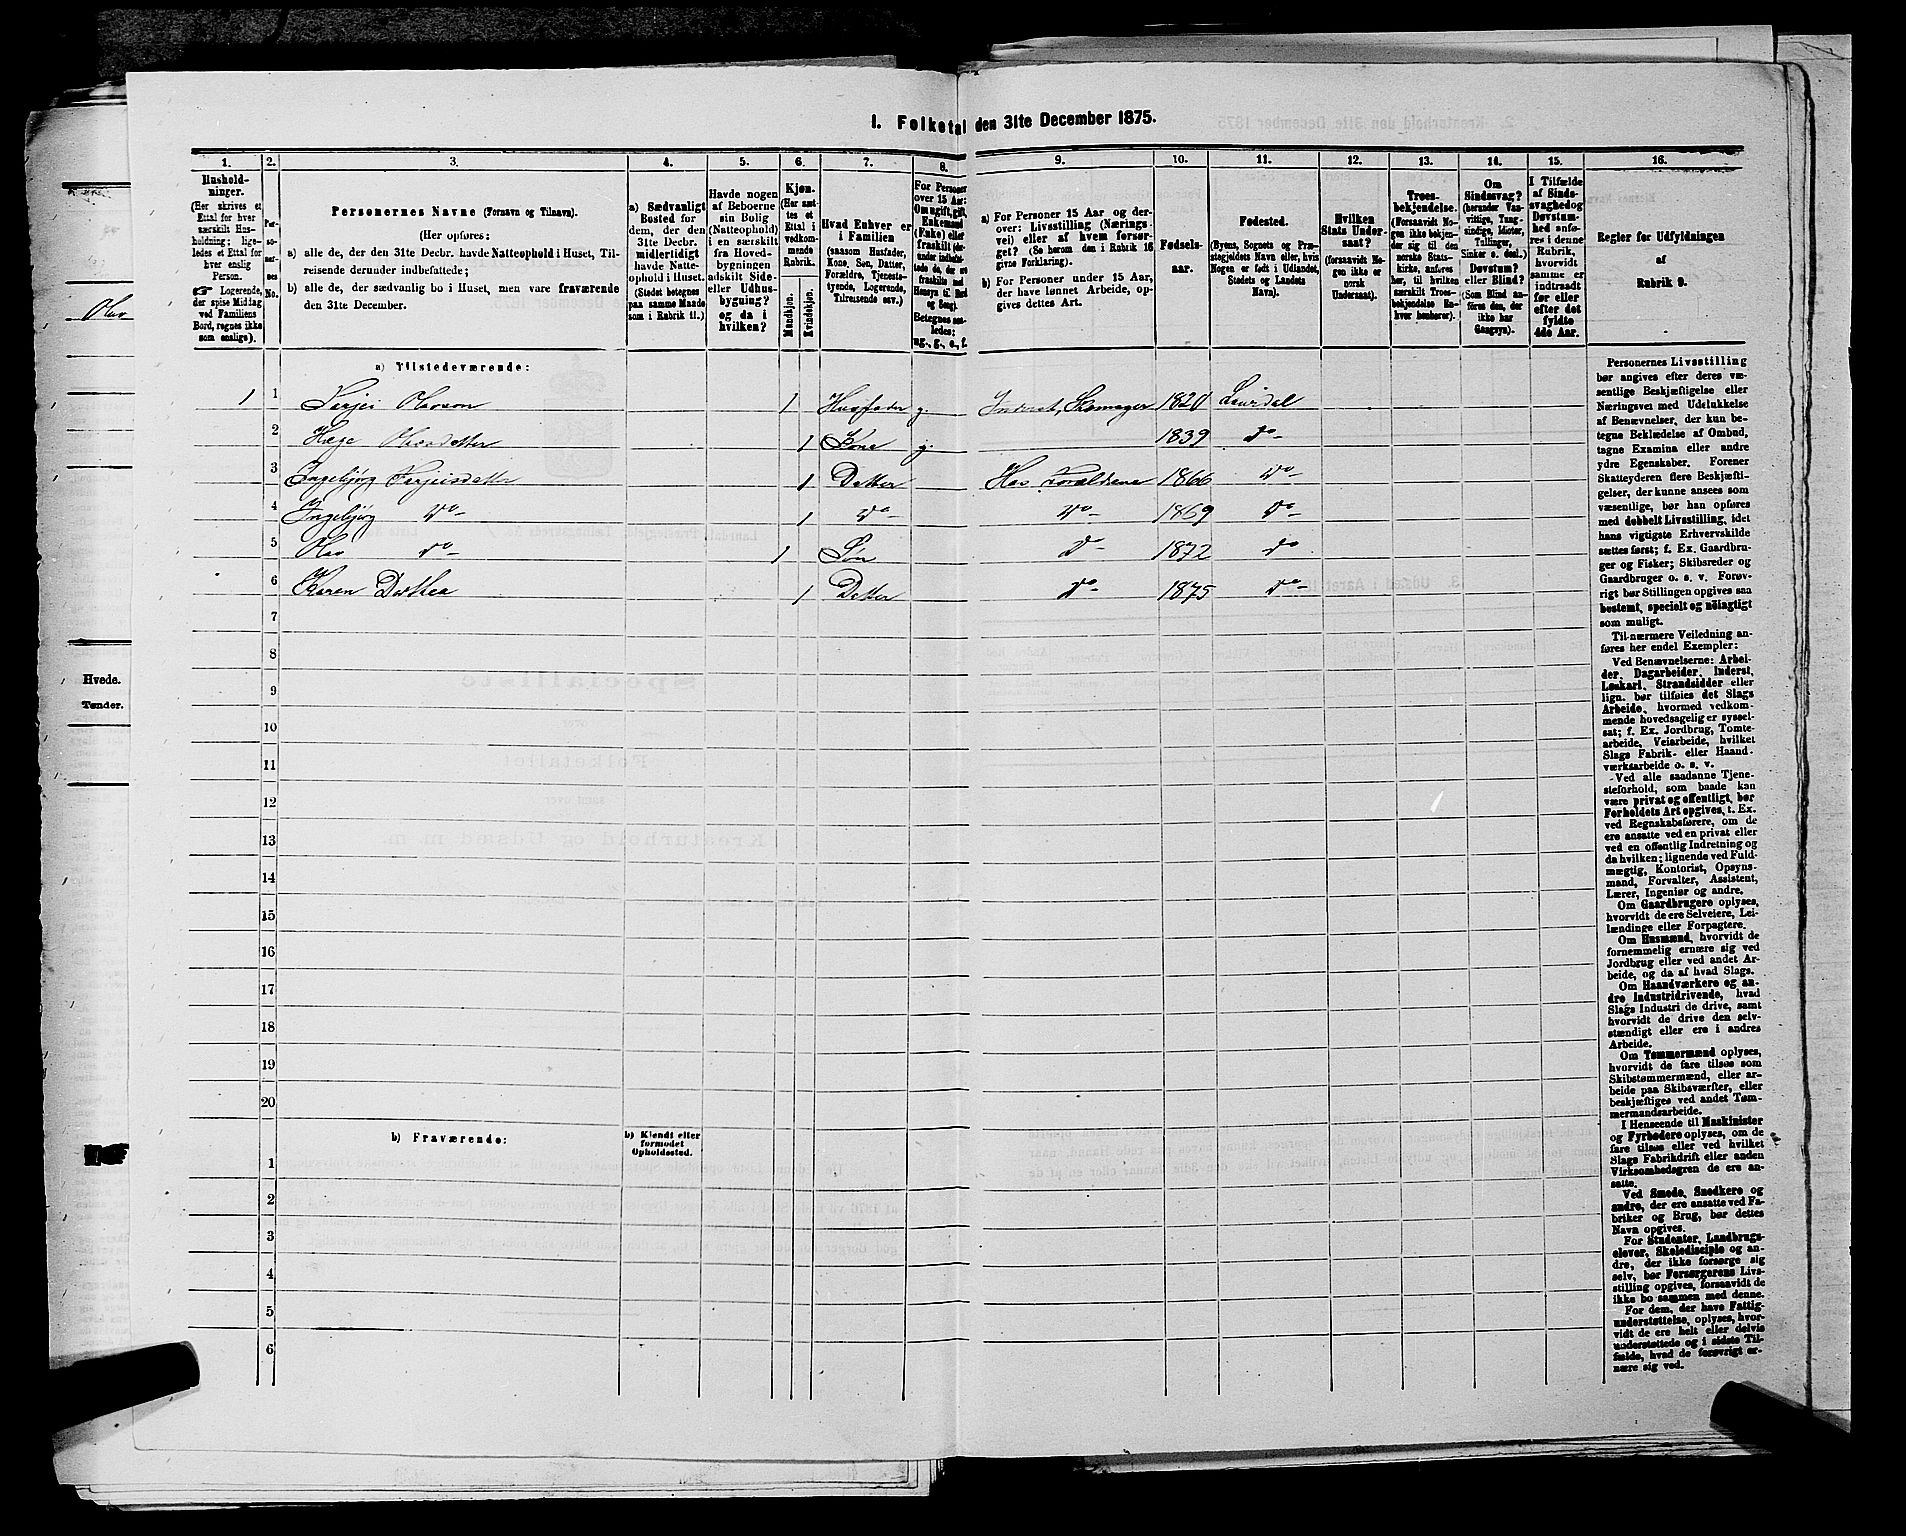 1. Folketal den 31te December 1875.
1. 2. 3. 4. 5. 6. 7. 8. 9. 10. 11. 12. 13. 14. 15. 16.
Hushold-
ninger.
(Her skrives et
Ettal for hver
særskilt Hus-
holdning; lige-
ledes et Ettal for
hver enslig
Person.
☞ Logerende,
der spise Middag
ved Familiens
Bord, regnes ikke
som enslige).
Per-
so-
ner-
nes
No.
Personernes Navne (Fornavn og Tilnavn).
(Her opføres;
a) alle de, der den 31te Decbr. havde Natteophold i Huset, Til-
reisende derunder indbefattede;
b) alle de, der sædvanlig bo i Huset, men vare fraværende
den 31te December.
a) Sædvanligt
Bosted for
dem, der den
31te Decbr.
midlertidigt
havde Natte-
ophold i Huset.
(Stedet betegnes
paa samme Maade
som i Rubrik 11.)
Havde nogen
af Beboerne
sin Bolig
(Natteophold)
i en særskilt
fra Hoved-
bygningen
adskilt Side-
eller Udhus-
bygning?
og da i
hvilken?
Kjøn.
(Her sæt-
tes et
Ettal i
vedkom-
mende
Rubrik.
Mandkjøn.
Kvindekjøn.
Hvad Enhver er
i Familien
(saasom Husfader,
Kone, Søn, Datter,
Forældre, Tjeneste-
tyende, Logerende,
Tilreisende osv.)
For Personer
over 15 Aar:
Om ugift, gift,
Enkemand
(Enke) eller
fraskilt
Betegnes saa-
ledes:
ug., g., e., f.
a) For Personer 15 Aar og der-
over: Livsstilling (Nærings-
vei) eller af hvem forsør-
get? (Se herom den i Rubrik 16
givne Forklaring).
b) For Personer under 15 Aar,
der have lønnet Arbeide, op-
gives dettes Art.
Fødsels-
aar.
Fødested.
(Byens, Sognets og Præ-
stegjeldets Navn eller, hvis
Nogen er født i Udlandet,
Stedets og Landets
Navn).
Hvilken
Stats Under-
saat?
(forsaavidt No-
gen ikke er
norsk
Undersaat).
Troes-
bekjendelse.
(Forsaavidt No-
gen ikke bekjen-
der sig til den
norske Stats-
kirke, anføres
her, til hvilken
særskilt Troes-
bekjendelse En-
hver henhører).
Om
Sindssvag?
(herunder Van-
vittige, Tung-
sindige, Idioter,
Tullinger,
Sinker o. desl.).
Døvstum?
eller Blind?
(Som Blind an-
føres den, der
ikke har
Gangsyn).
I Tilfælde
af Sinds-
svaghed og
Døvstum-
hed anfø-
res i denne
Rubrik,
hvorvidt
samme er
indtraadt
før eller
efter det
fyldte
4de Aar.
Regler for Udfyldningen
af
Rubrik 9.
a) Tilstedeværende:
1 1 Terjei Olavson 1 Husfader g. Inderst, Skomager 1820 Laurdal
2 Hæge Olavsdatter 1 Kone g. 1839 Do
3 Ingebjørg Terjeisdatter 1 Datter Hos Forældrene 1866 Do
4 Ingebjørg Do 1 Do Do 1869 Do
5 Olav do 1 Søn Do 1872 Do
6 Karen Dorthea 1 Datter Do 1875 Do
7
8
9
10
11
12
13
14
15
16
17
18
19
20
b) Fraværende: b) Kjendt eller
formodet
Opholdssted.
1
2
3
4
5
6
Personernes Livsstilling
bør angives efter deres væ-
sentlige Beskjæftigelse eller
Næringsvei med Udelukkelse
af Benævnelser, der kun be-
tegne Beklædelse af Ombud,
tagne Examina eller andre
ydre Egenskaber. Forener
Skatteyderen flere Beskjæfti-
gelser, der kunne ansees som
væsentlige, bør han opføres
med dobbelt Livsstilling, idet
hans vigtigste Erhvervskilde
sættes først; f. Ex. Gaardbru-
ger og Fisker; Skibsreder og
Gaardbruger o. s. v. Forøv-
rigt bør Stillingen opgives saa
bestemt, specielt og nöiagtigt
som muligt.
Til nærmere Veiledning an-
føres her endel Exempler:
Ved Benævnelserne: Arbei-
der, Dagarbeider, Inderst,
Løskarl, Strandsidder eller
lign. bør tilføies det Slags
Arbeide, hvormed vedkom-
mende hovedsagelig er syssel-
sat; f. Ex. Jordbrug, Tomte-
arbeide, Veiarbeide, hvilket
Slags Fabrik- eller Haand-
værksarbeide o. s. v.
Ved alle saadanne Tjene-
steforhold, som baade kan
være privat og offentligt, bør
Forholdets Art opgives, t. Ex.
ved Regnskabsførere, om de
ere ansatte ved en privat eller
ved en offentlig Indretning og
da hvilken; lignende ved Fuld-
mægtig, Kontorist, Opsyns-
mand, Forvalter, Assistent,
Lærer, Ingeniør og andre.
Om Gaardbrugere oplyses,
hvorvidt de ere Selveiere, Lei-
lændinge eller Forpagtere.
Om Husmænd, hvorvidt de
fornemmelig ernære sig ved
Jordbrug eller ved andet Ar-
beide, og da af hvad Slags.
Om Haandværkere og an-
dre Industridrivende, hvad
Slags Industri de drive, samt
hvorvidt de drive den selv-
stændigt eller ere i andres
Arbeide.
Om Tømmermænd oplyses,
hvorvidt de fare tilsøs som
Skibstømmermænd, eller ar-
beide paa Skibsværfter, eller
beskjæftiges ved andet Tøm-
mermandsarbeide.
I Henseende til Maskinister
og Fyrbødere oplyses, om de
fare tilsøs eller ved hvilket
Slags Fabrikdrift eller anden
Virksomhedsgren de ere an-
satte.
Ved Smede, Snedkere og
andre, der ere ansatte ved Fa-
briker og Brug, bør dettes
Navn opgives.
For Studenter, Landbrugs-
elever, Skoledisciple og an-
dre, der ikke forsørge sig
selv, bør Forsørgerens Livs-
stilling opgives, forsaavidt de
ikke bo sammen med denne.
For dem, der have Fattig-
understøttelse, oplyses, hvor-
vidt de ere helt eller delvis
understøttede og i sidste Til-
fælde, hvad de forøvrigt er-
nære sig ved.
Olav
Hvede.
Tønder.